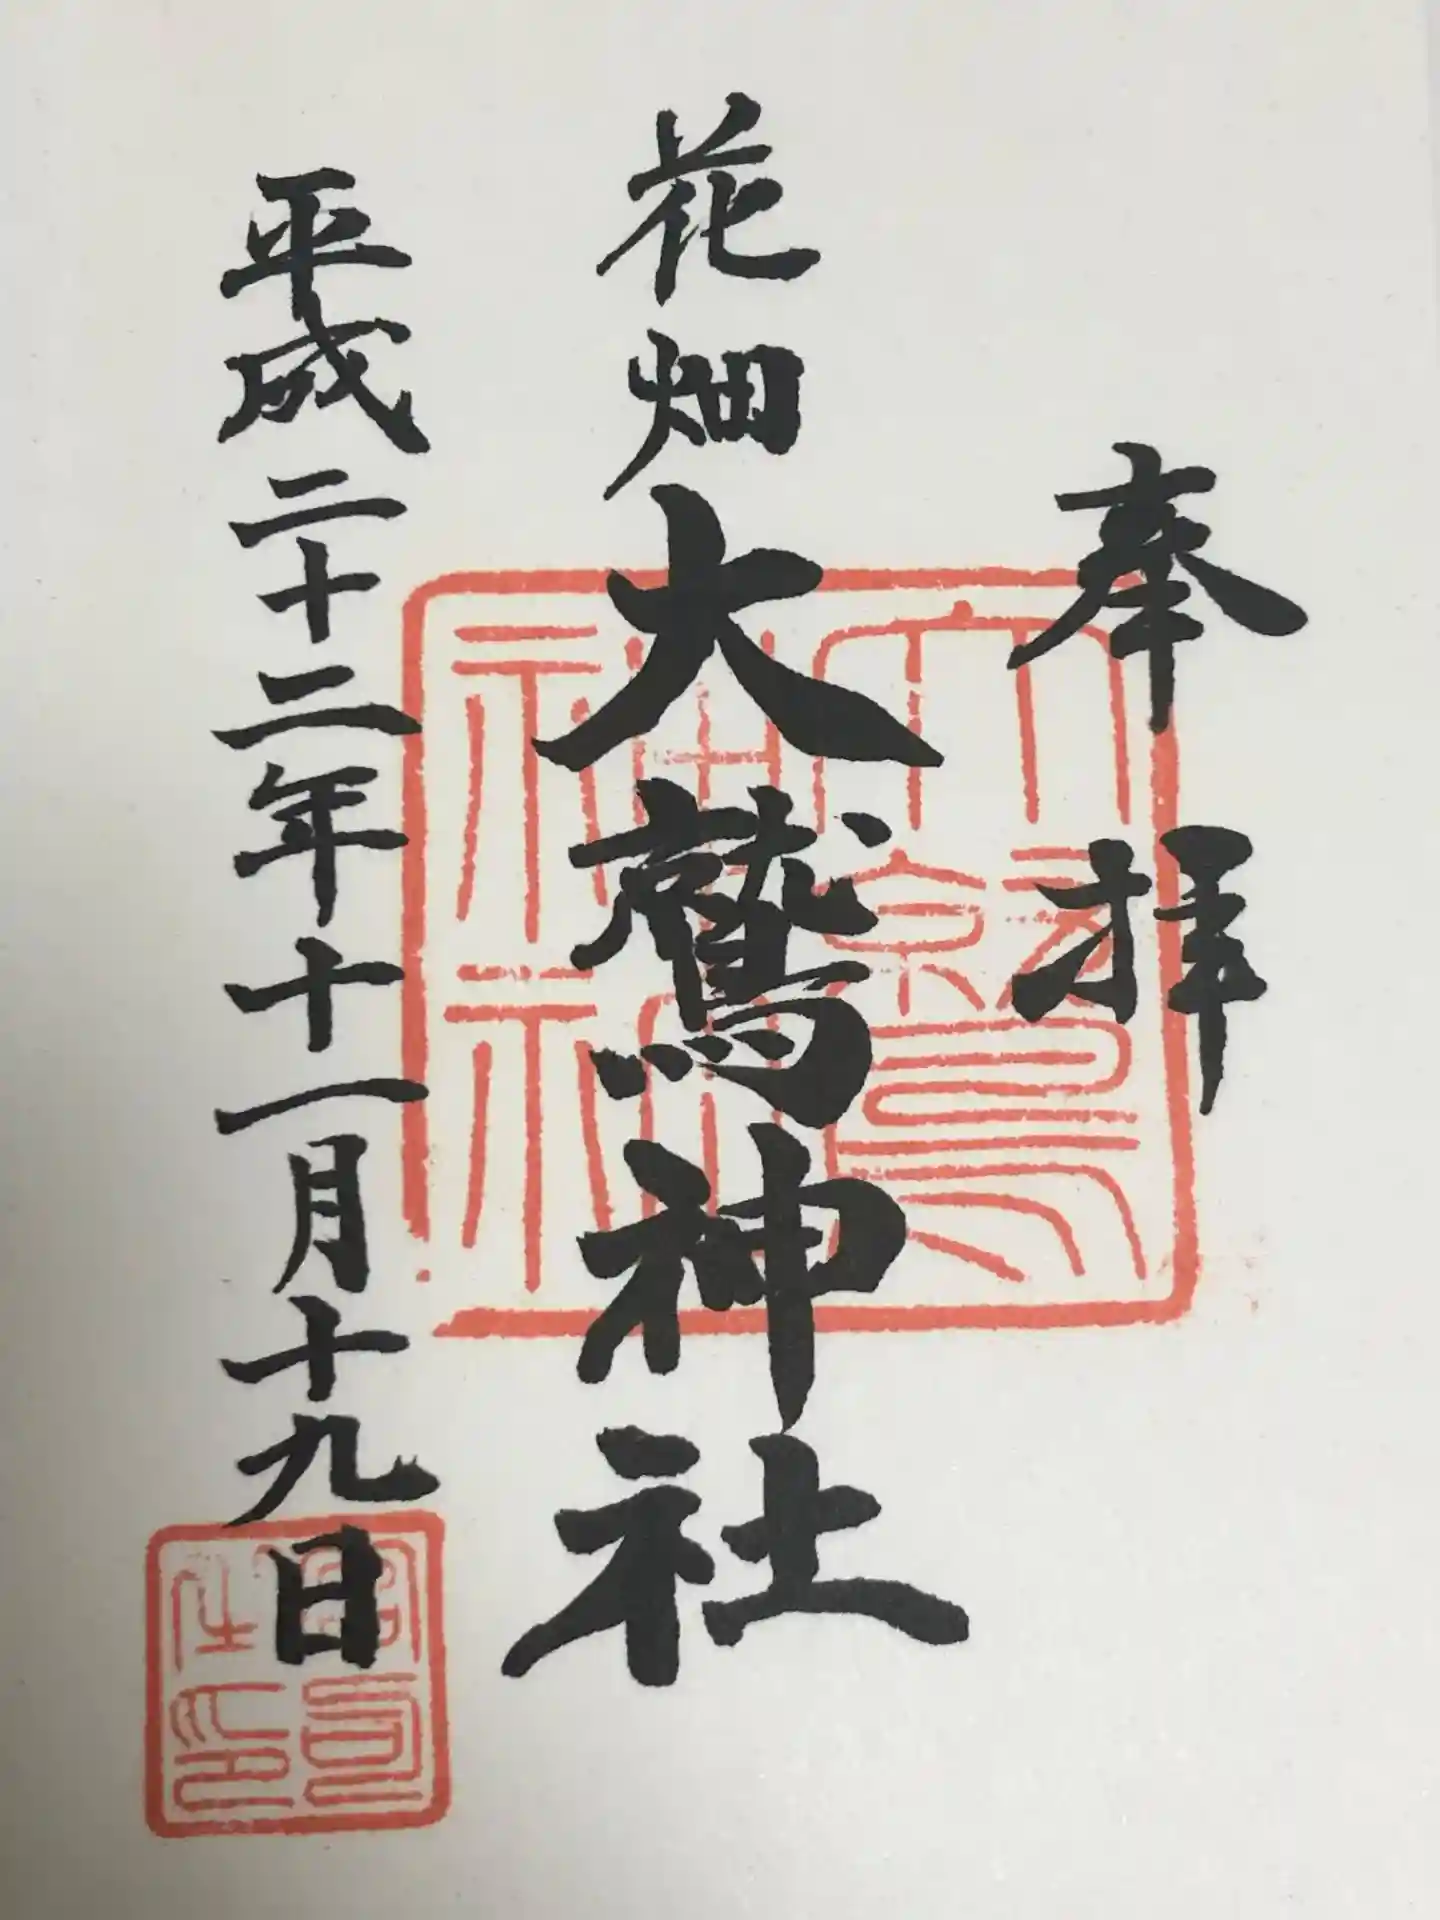 奉拝
花畑大鷲神社
平成二十二年十一月十九日
大鷲神社
宮司之印